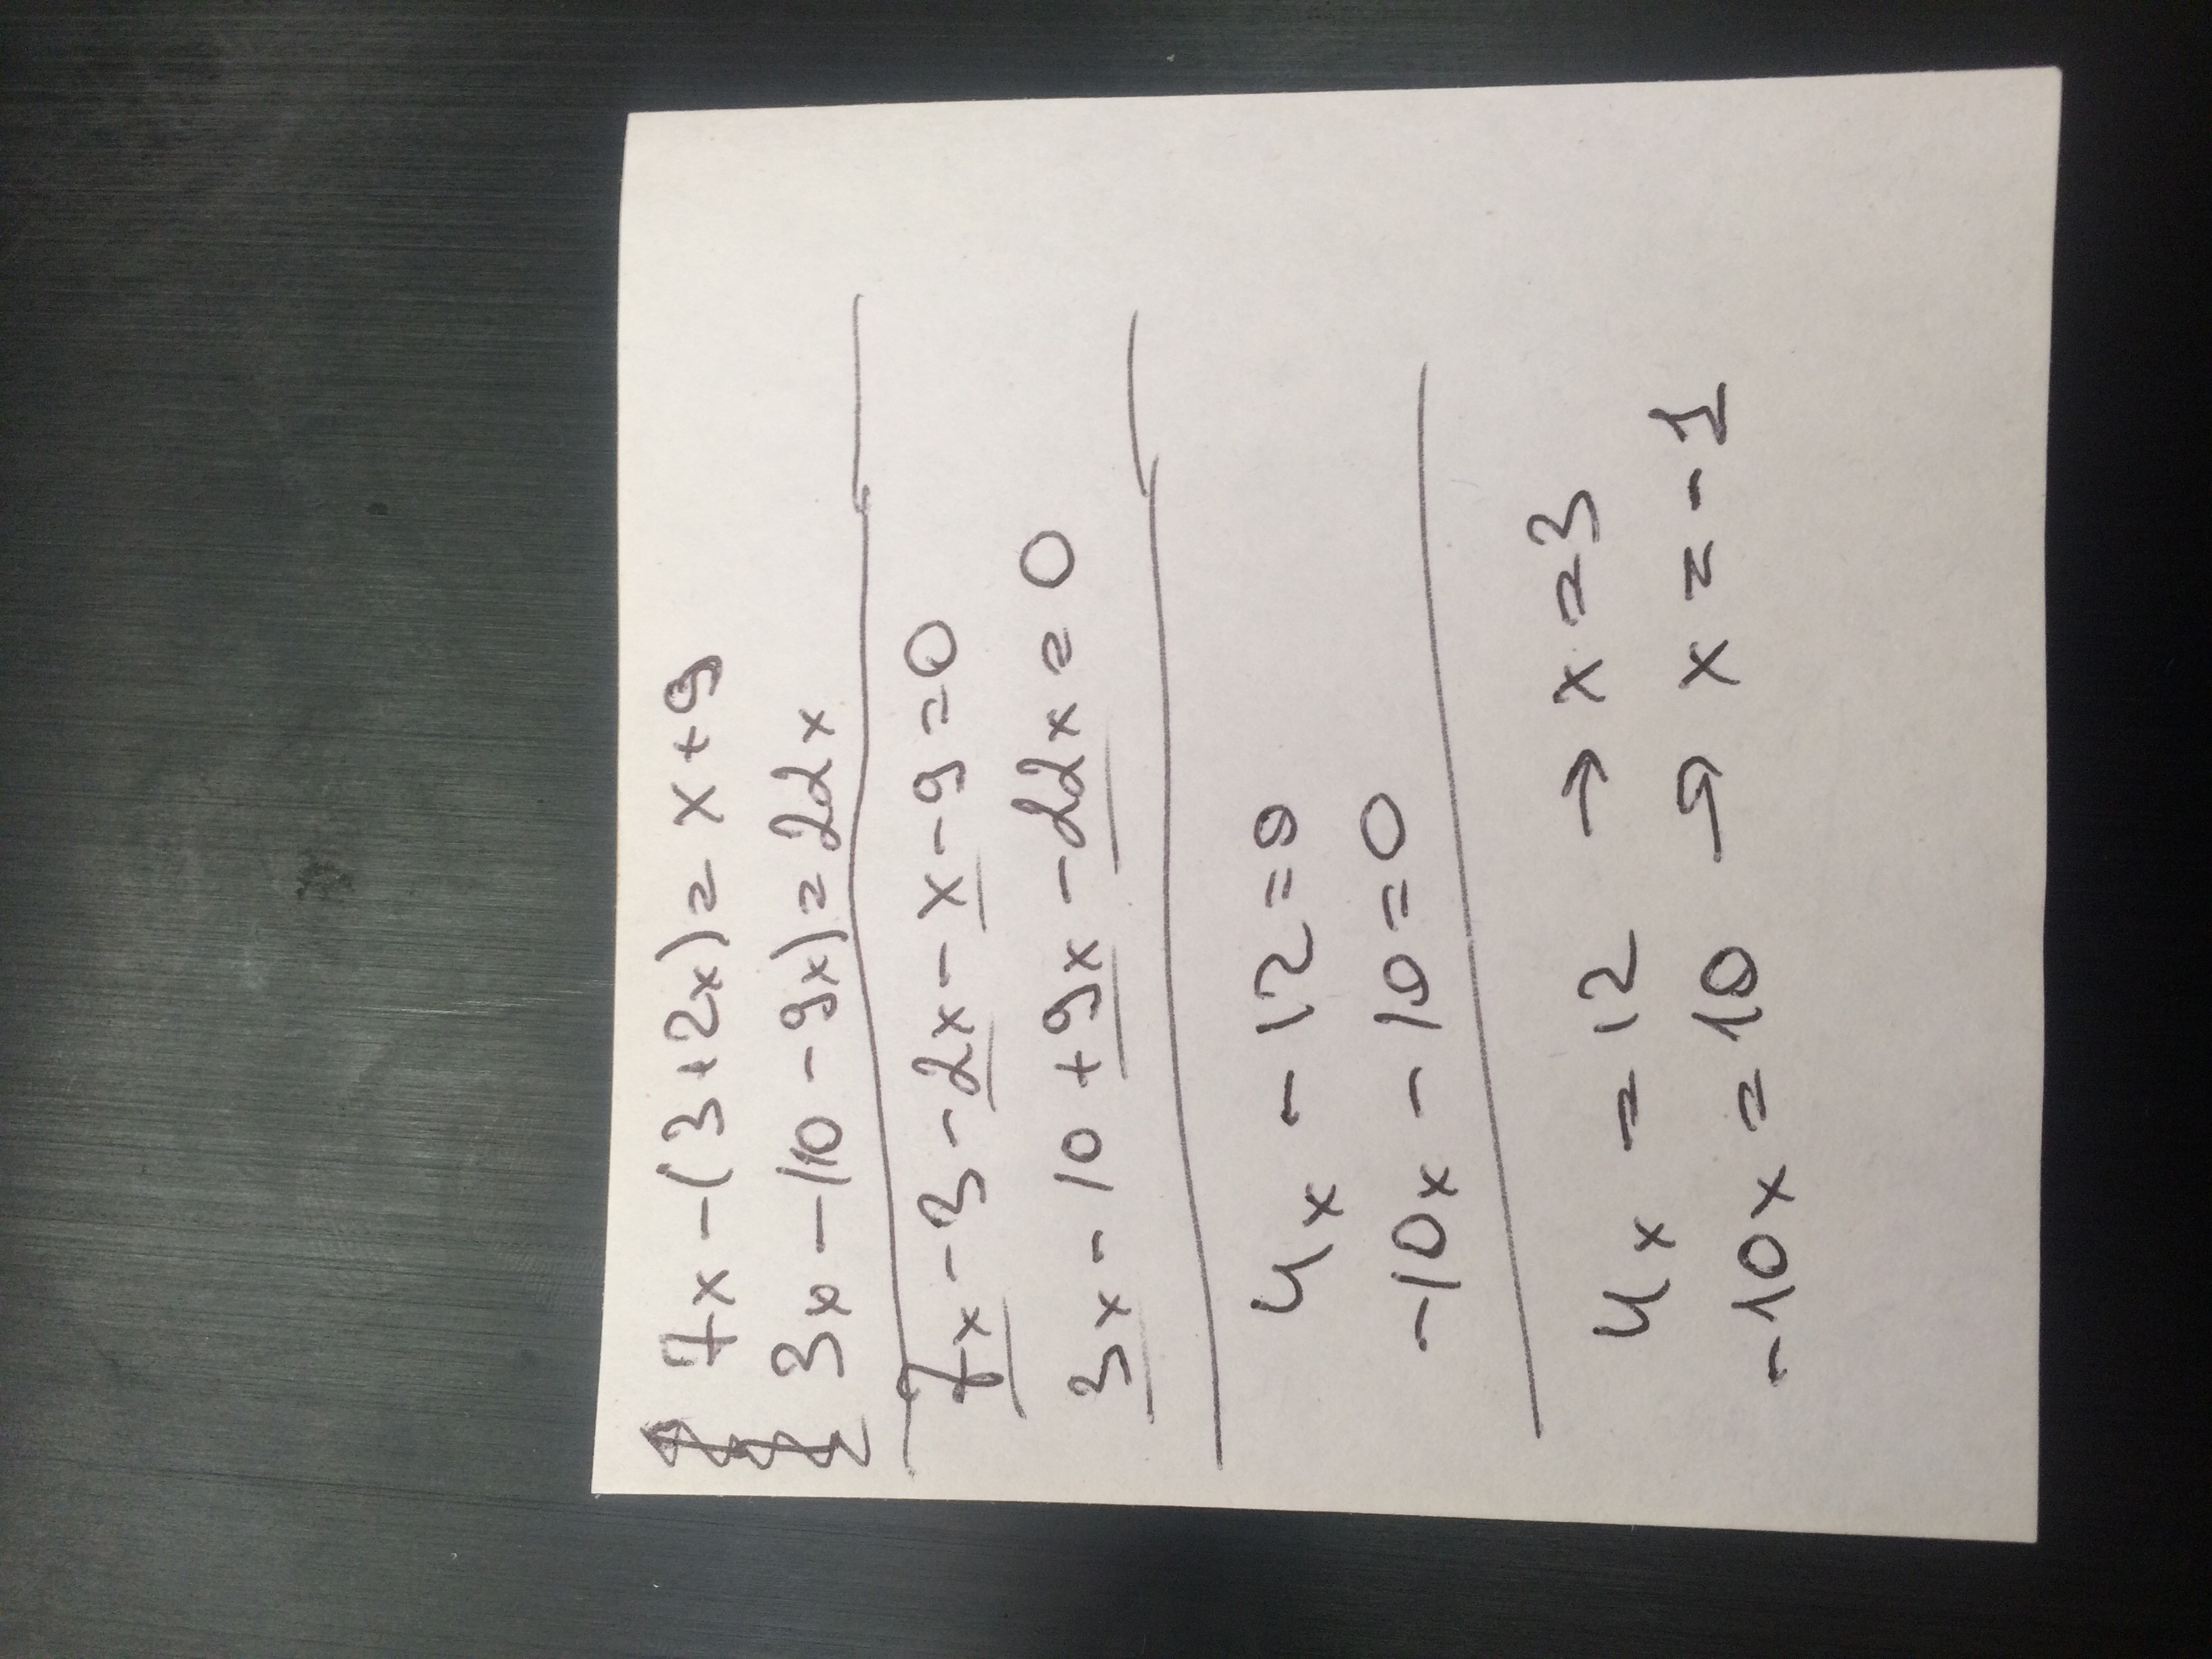 7x - (3+2x) = x+9
3x - (10 - 9x) = 22x
7x - 3 - 2x - x - 9 = 0
3x - 10 + 9x - 22x = 0
4x - 12 = 0
-10x - 10 = 0
4x = 12 → x = 3
-10x = 10 → x = -1